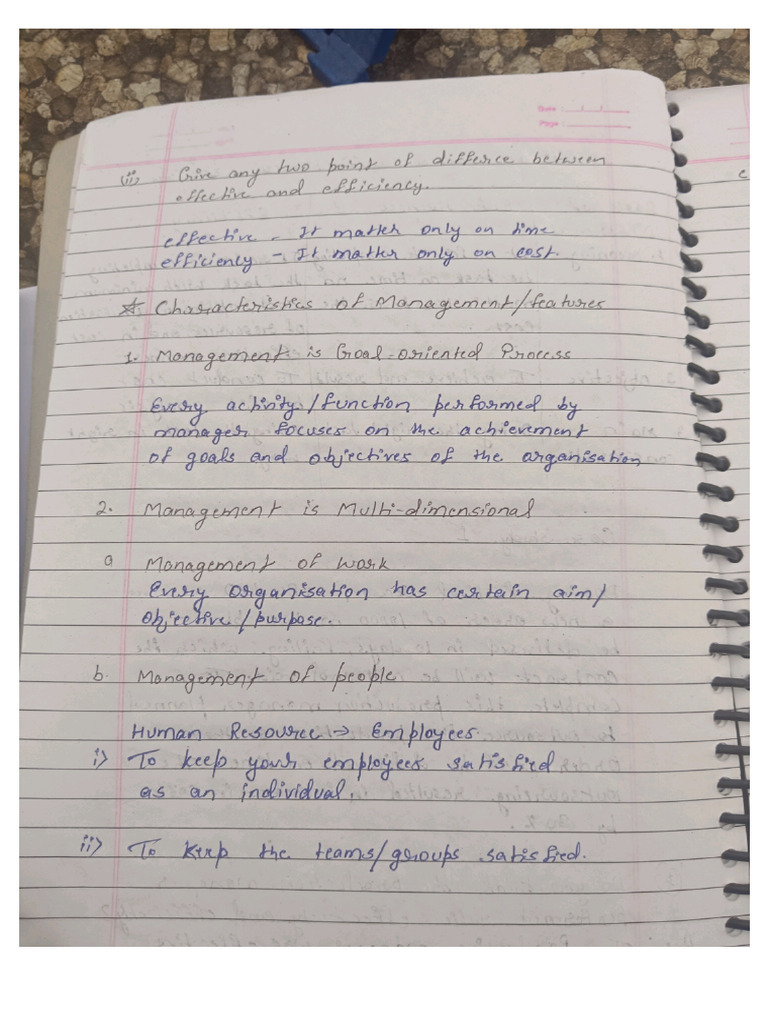 Date : __/__/__
Page : ________
(ii) Give any two point of differce between
effective and efficiency.
effective - It matter only on time
efficienly - It matter only on cost.
☆ Characteristics of Management/features
1. Management is Goal-oriented Process
Every activity/function performed by
manager focuses on the achievement
of goals and objectives of the organisation
2. Management is Multi-dimensional
a Management of work
Every organisation has certain aim/
objective/purpose.
b. Management of people
Human Resource → Employees
i) To keep your employees satisfied
as an individual.
ii) To keep the teams/groups satisfied.